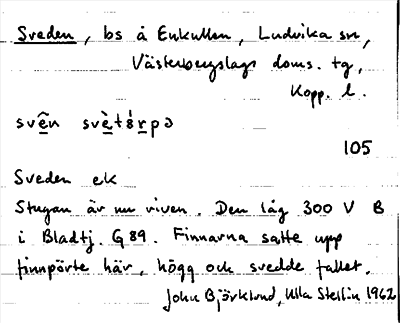 Sveden, bs å Enkullen, Ludvika sn,
Västerbergslags doms. tg,
Kopp. l.
svên svèt
105
Sveden ek
Stugan är nu riven. Den låg 300 V B
i Bladtj. G 89. Finnarna satte upp
finnpörte här, högg och svedde fallet.
John Björklund, Ulla Stellin 1962